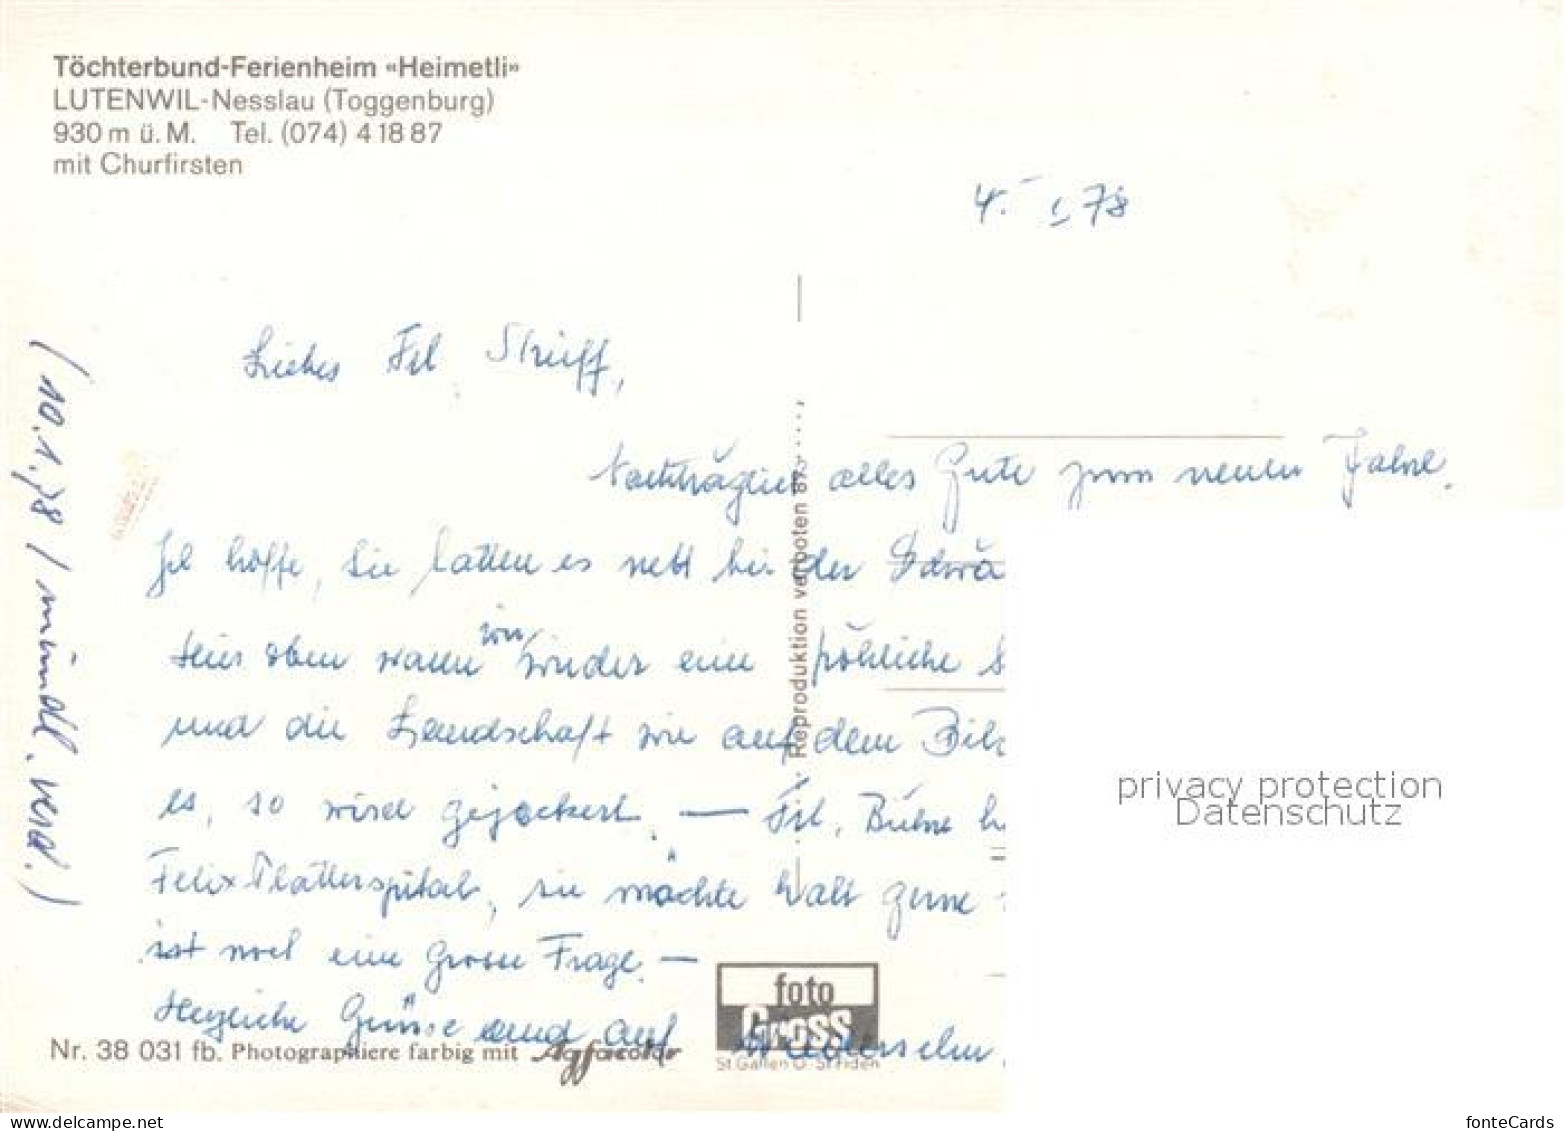 Töchterbund-Ferienheim «Heimetli»
LUTENWIL-Nesslau (Toggenburg)
930 m ü. M. Tel. (074) 4 18 87
mit Churfirsten
4. 78
Liebes Frl
Nachträglich alles Gute zum neuen Jahre.
Ich hoffe, Sie hatten es nett bei der
Hier oben waren wir wieder eine fröhliche
und die Landschaft wie auf dem
es, so wird gejockert. — Frl.
Felix Platterspital, sie möchte halt gerne
ist noch eine grosse Frage. —
Herzliche Grüsse und auf Wiedersehen
(10.1.78 / mündl. verd.)
Reproduktion verboten
foto
Gross
St. Gallen O - St. Fiden
Nr. 38 031 fb. Photographiere farbig mit Agfacolor
privacy protection
Datenschutz
www.delcampe.net
fonteCards